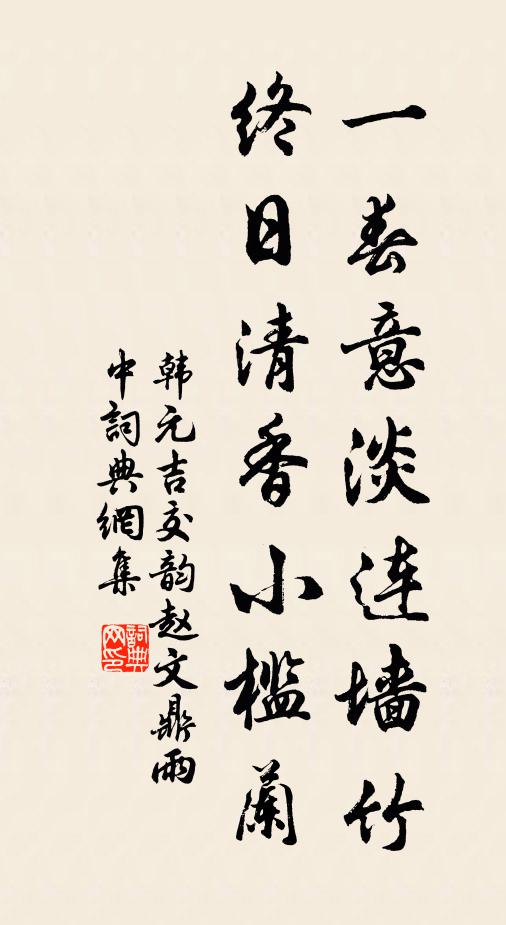 一春意淡连墙竹
终日清香小槛蘭
韩元吉次韵赵文鼎雨
中詞典網集
詞典网印